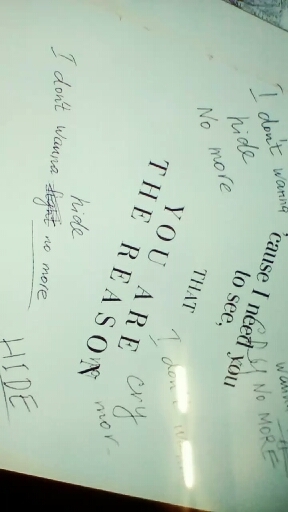 I don't wanna
hide
No more
'cause I need you
to see,
NO MORE
THAT
I don't
YOU ARE cry
THE REASON mor-
hide
I don't wanna fight no more
HIDE